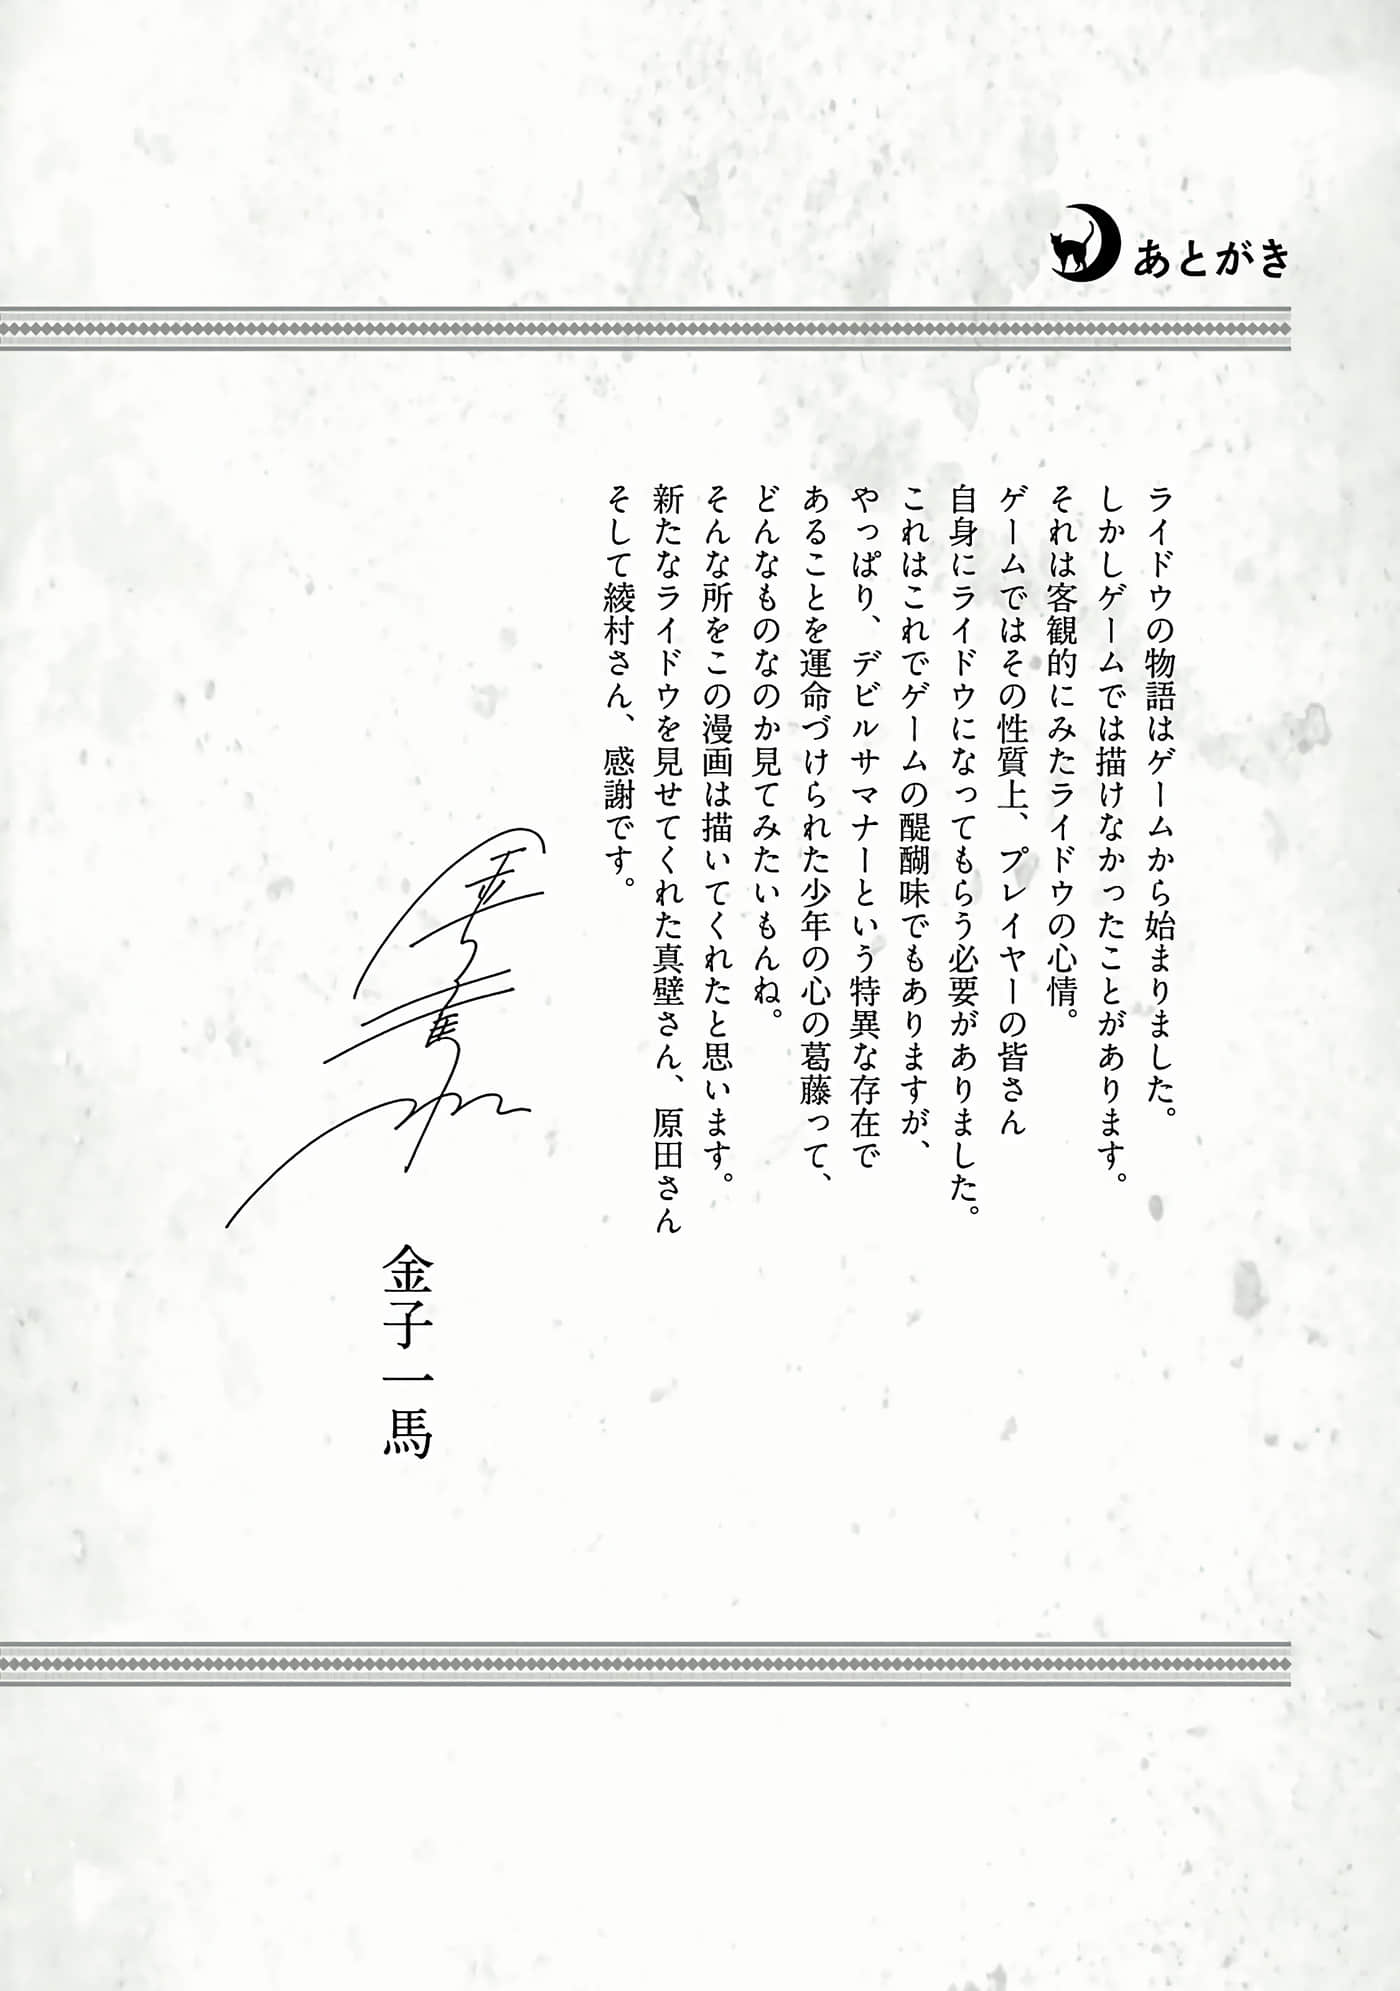 あとがき
ライドウの物語はゲームから始まりました。
しかしゲームでは描けなかったことがあります。
それは客観的にみたライドウの心情。
ゲームではその性質上、プレイヤーの皆さん
自身にライドウになってもらう必要がありました。
これはこれでゲームの醍醐味でもありますが、
やっぱり、デビルサマナーという特異な存在で
あることを運命づけられた少年の心の葛藤って、
どんなものなのか見てみたいもんね。
そんな所をこの漫画は描いてくれたと思います。
新たなライドウを見せてくれた真壁さん、原田さん
そして綾村さん、感謝です。
金子一馬